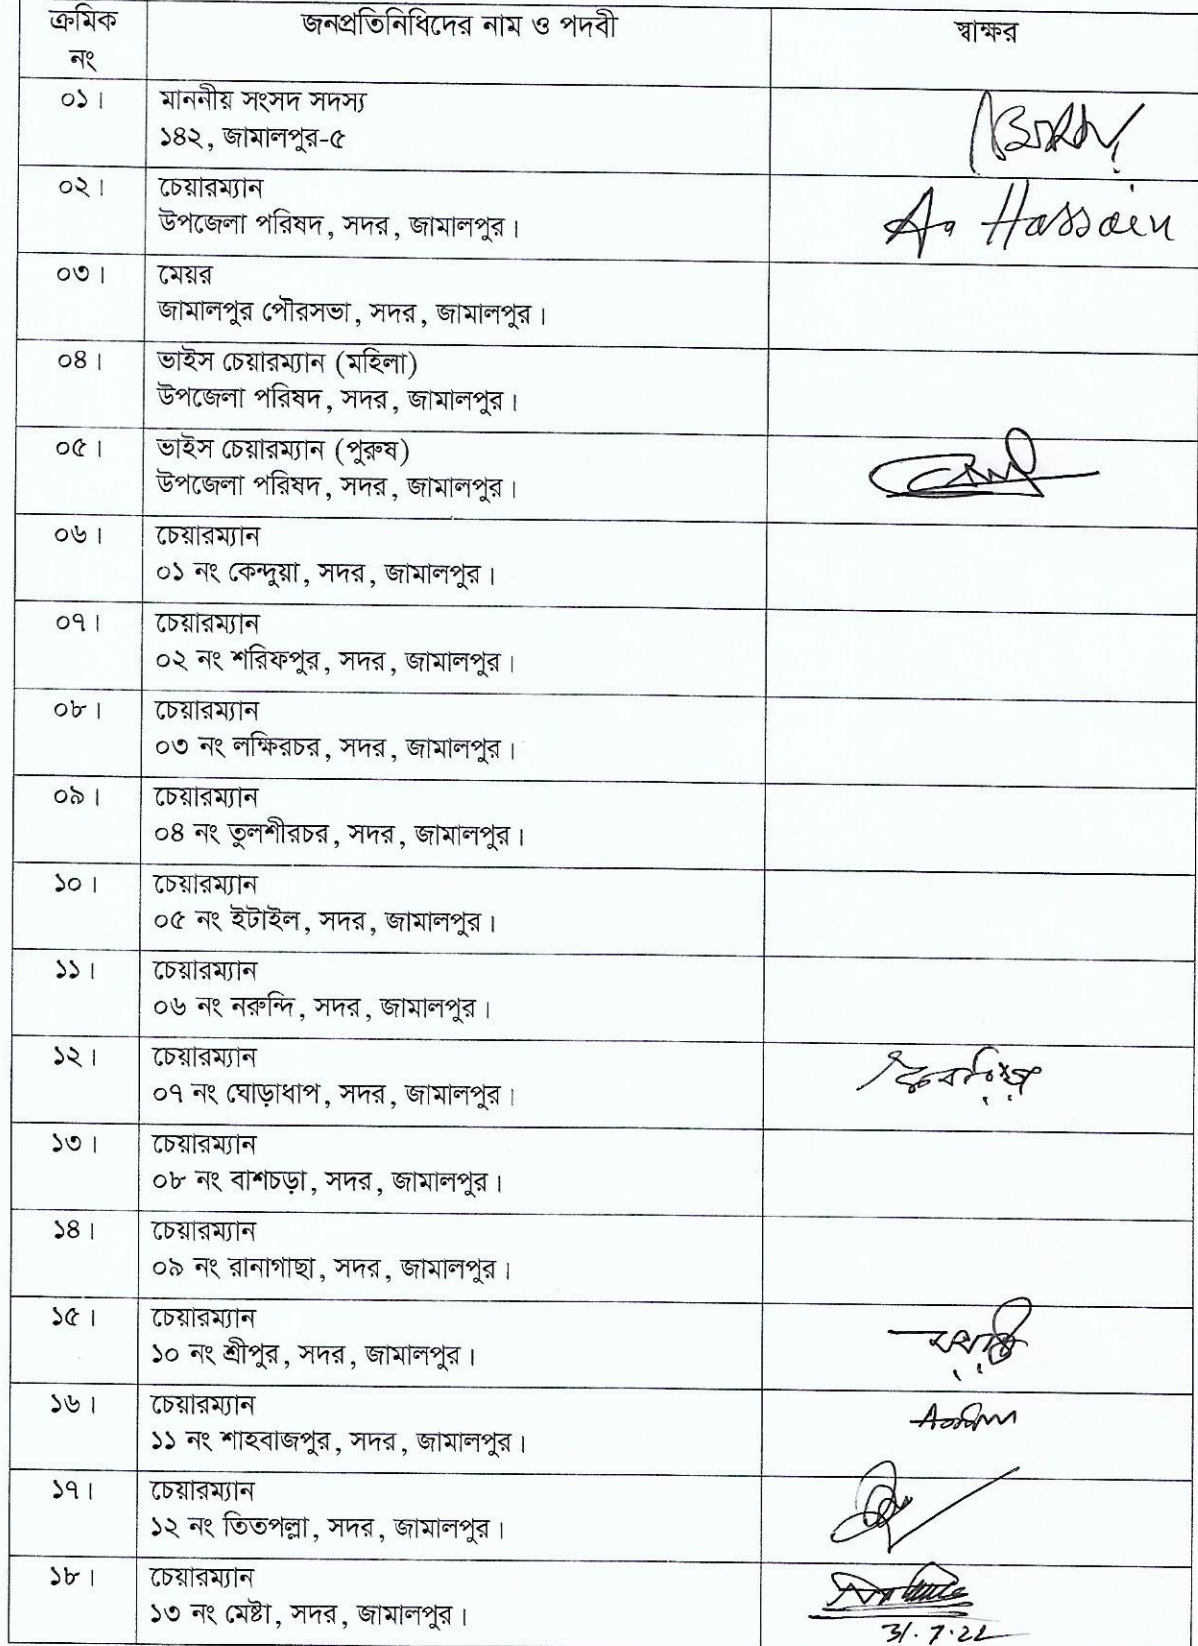 ক্রমিক
নং
জনপ্রতিনিধিদের নাম ও পদবী
স্বাক্ষর
০১।
মাননীয় সংসদ সদস্য
১৪২, জামালপুর-৫
০২।
চেয়ারম্যান
উপজেলা পরিষদ, সদর, জামালপুর।
Hossain
০৩।
মেয়র
জামালপুর পৌরসভা, সদর, জামালপুর।
০৪।
ভাইস চেয়ারম্যান (মহিলা)
উপজেলা পরিষদ, সদর, জামালপুর।
০৫।
ভাইস চেয়ারম্যান (পুরুষ)
উপজেলা পরিষদ, সদর, জামালপুর।
০৬।
চেয়ারম্যান
০১ নং কেন্দুয়া, সদর, জামালপুর।
০৭।
চেয়ারম্যান
০২ নং শরিফপুর, সদর, জামালপুর।
০৮।
চেয়ারম্যান
০৩ নং লক্ষিরচর, সদর, জামালপুর।
০৯।
চেয়ারম্যান
০৪ নং তুলশীরচর, সদর, জামালপুর।
১০।
চেয়ারম্যান
০৫ নং ইটাইল, সদর, জামালপুর।
১১।
চেয়ারম্যান
০৬ নং নরুন্দি, সদর, জামালপুর।
১২।
চেয়ারম্যান
০৭ নং ঘোড়াধাপ, সদর, জামালপুর।
১৩।
চেয়ারম্যান
০৮ নং বাশচড়া, সদর, জামালপুর।
১৪।
চেয়ারম্যান
০৯ নং রানাগাছা, সদর, জামালপুর।
১৫।
চেয়ারম্যান
১০ নং শ্রীপুর, সদর, জামালপুর।
১৬।
চেয়ারম্যান
১১ নং শাহবাজপুর, সদর, জামালপুর।
১৭।
চেয়ারম্যান
১২ নং তিতপল্লা, সদর, জামালপুর।
১৮।
চেয়ারম্যান
১৩ নং মেষ্টা, সদর, জামালপুর।
31.7.22